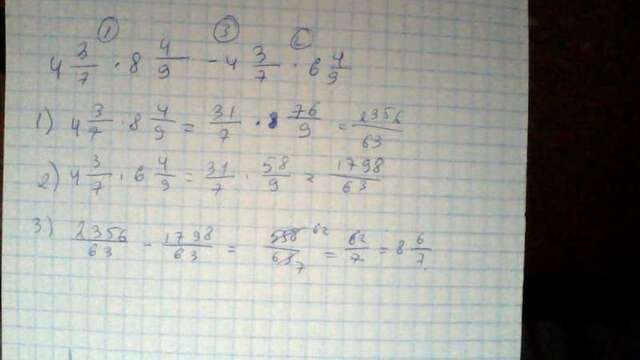 ① ③ ②
4 3/7 · 8 4/9 - 4 3/7 · 6 4/9
1) 4 3/7 · 8 4/9 = 31/7 · 8 76/9 = 2356/63
2) 4 3/7 · 6 4/9 = 31/7 · 58/9 = 1798/63
3) 2356/63 - 1798/63 = 558 62/63 7 = 62/7 = 8 6/7